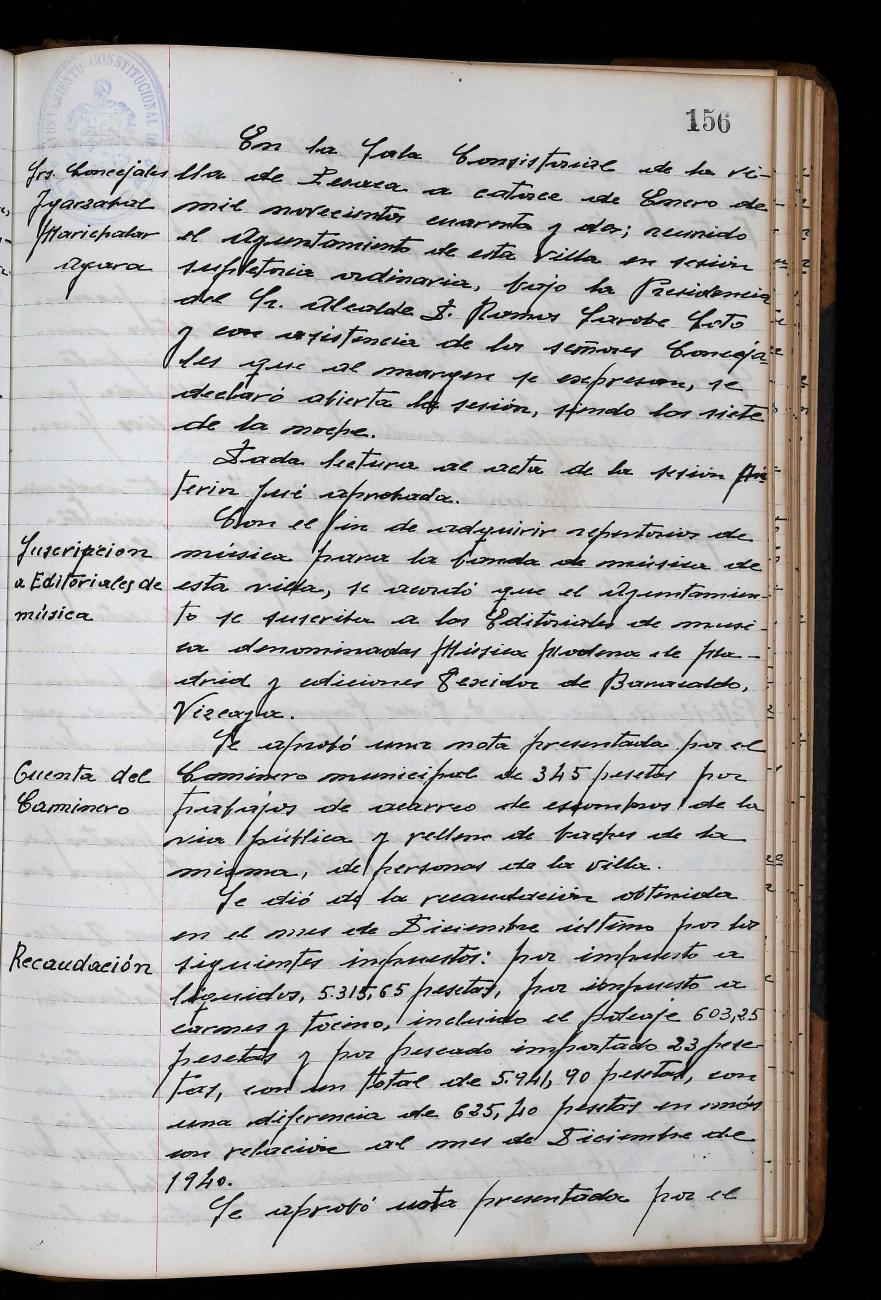 156
AYUNTAMIENTO CONSTITUCIONAL DE
En la Sala Consistorial de la vi-
Srs. Concejales
lla de Lesaca a catorce de Enero de
Ygarzabal
mil novecientos cuarenta y dos; reunido
Marichalar
el Ayuntamiento de esta villa en sesión
Ayara
supletoria ordinaria, bajo la Presidencia
del Sr. Alcalde D. Ramos Sarobe Soto
y con asistencia de los señores Conceja-
les que al margen se expresan, se
declaró abierta la sesión, siendo las siete
de la noche.
Dada lectura al acta de la sesión an
terior fué aprobada.
Con el fin de adquirir repertorios de
Suscripcion
música para la banda de música de
a Editoriales de
esta villa, se acordó que el Ayuntamien-
música
to se suscriba a las Editoriales de musi-
ca denominadas Música Moderna de Ma-
drid y ediciones Texidor de Baracaldo,
Vizcaya.
Se aprobó una nota presentada por el
Cuenta del
Caminero municipal de 345 pesetas por
Caminero
trabajos de acarreo de escombros de la
via pública y relleno de baches de la
misma, de personas de la villa.
Se dió de la recaudación obtenida
en el mes de Diciembre último por los
Recaudación
siguientes impuestos: por impuesto a
líquidos, 5.315,65 pesetas, por impuesto a
carnes y tocino, incluido el poleaje 603,25
pesetas y por pescado importado 23 pese-
tas, con un total de 5.941,90 pesetas, con
una diferencia de 625,40 pesetas en más
con relación al mes de Diciembre de
1940.
Se aprobó nota presentada por el